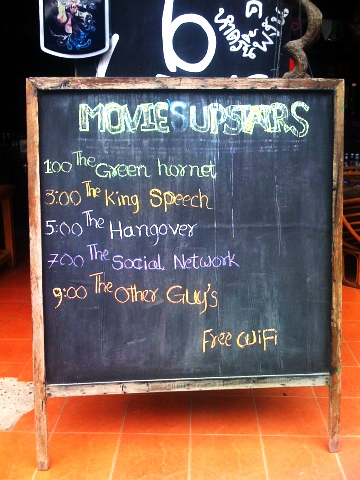 6
MOVIES UPSTAIRS
1:00 The Green hornet
3:00 The King Speech
5:00 The Hangover
7:00 The Social Network
9:00 The Other Guy's
Free WiFi